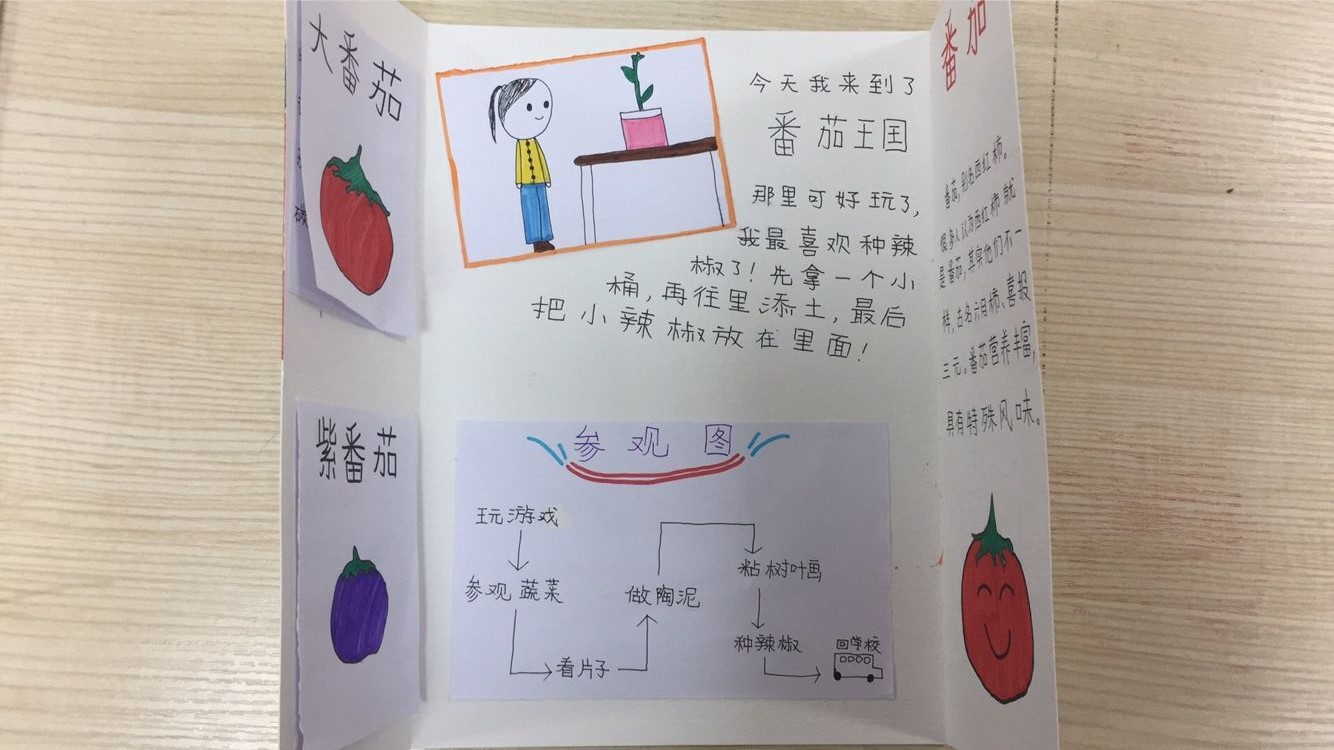 大番茄
紫番茄
今天我来到了
番茄王国
那里可好玩了,
我最喜欢种辣
椒了!先拿一个小
桶,再往里添土,最后
把小辣椒放在里面!
参观图
玩游戏
参观蔬菜
看片子
做陶泥
粘树叶画
种辣椒
回学校
番茄
番茄,别名西红柿。
很多人以为西红柿就
是番茄,其实他们不一
样,古名六月柿、喜报
三元。番茄营养丰富,
具有特殊风味。